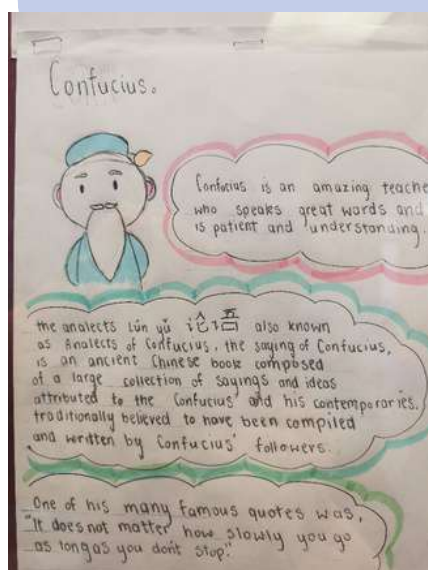 Confucius.
Confucius is an amazing teache
who speaks great words and
is patient and understanding.
the analects Lún yǔ 论语 also known
as Analects of Confucius, the saying of Confucius,
is an ancient Chinese book composed
of a large collection of sayings and ideas
attributed to the Confucius and his contemporaries.
traditionally believed to have been compiled
and written by Confucius' followers.
One of his many famous quotes was,
"It does not matter how slowly you go
as long as you don't stop."